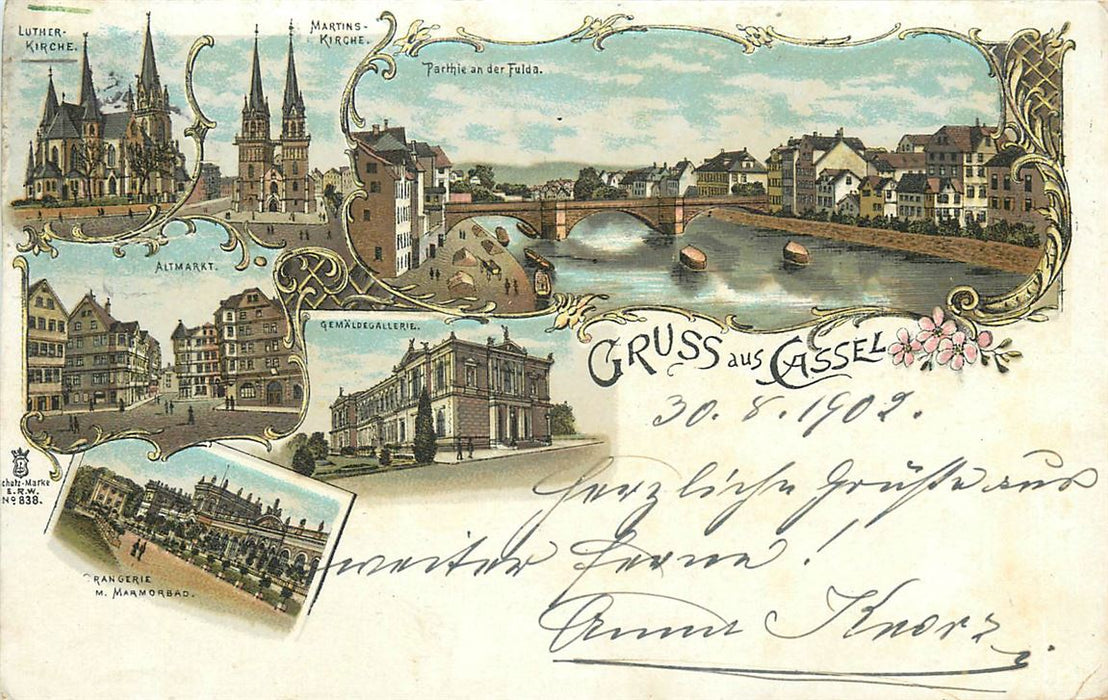 LUTHER-
KIRCHE.
MARTINS-
KIRCHE.
Parthie an der Fulda.
ALTMARKT.
GEMÄLDEGALLERIE.
GRUSS aus CASSEL
30. 8. 1902.
Herzliche Grüße aus
weiter Ferne!
Anna Knorz.
chutz-Marke
E.R.W.
No 838.
RANGERIE
M. MARMORBAD.